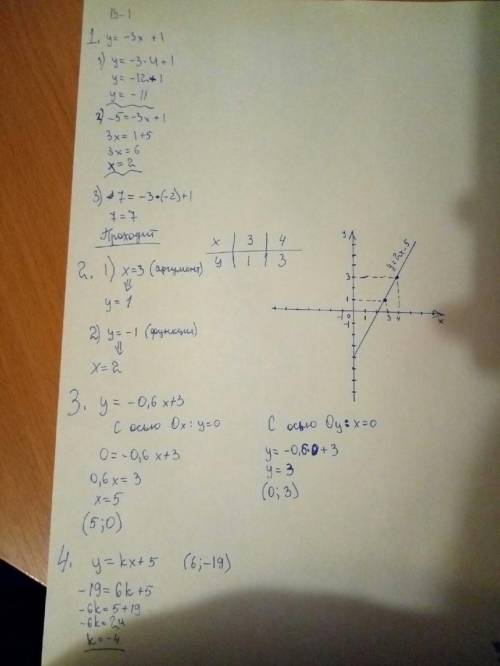 В-1
1. y = -3x + 1
1) y = -3·4 + 1
y = -12 + 1
y = -11
2) -5 = -3x + 1
3x = 1+5
3x = 6
x = 2
3) 7 = -3·(-2)+1
7 = 7
Проходит
2. 1) x=3 (аргумент)
⇓
y = 1
x | 3 | 4
y | 1 | 3
2) y = -1 (функция)
⇓
x = 2
y
3
1
-1 0 1 3 4 x
-1
y=2x-5
3. y = -0,6x+3
С осью Ox: y=0
0 = -0,6x+3
0,6x = 3
x = 5
(5; 0)
С осью Oy: x=0
y = -0,6·0+3
y = 3
(0; 3)
4. y = kx + 5 (6; -19)
-19 = 6k + 5
-6k = 5+19
-6k = 24
k = -4